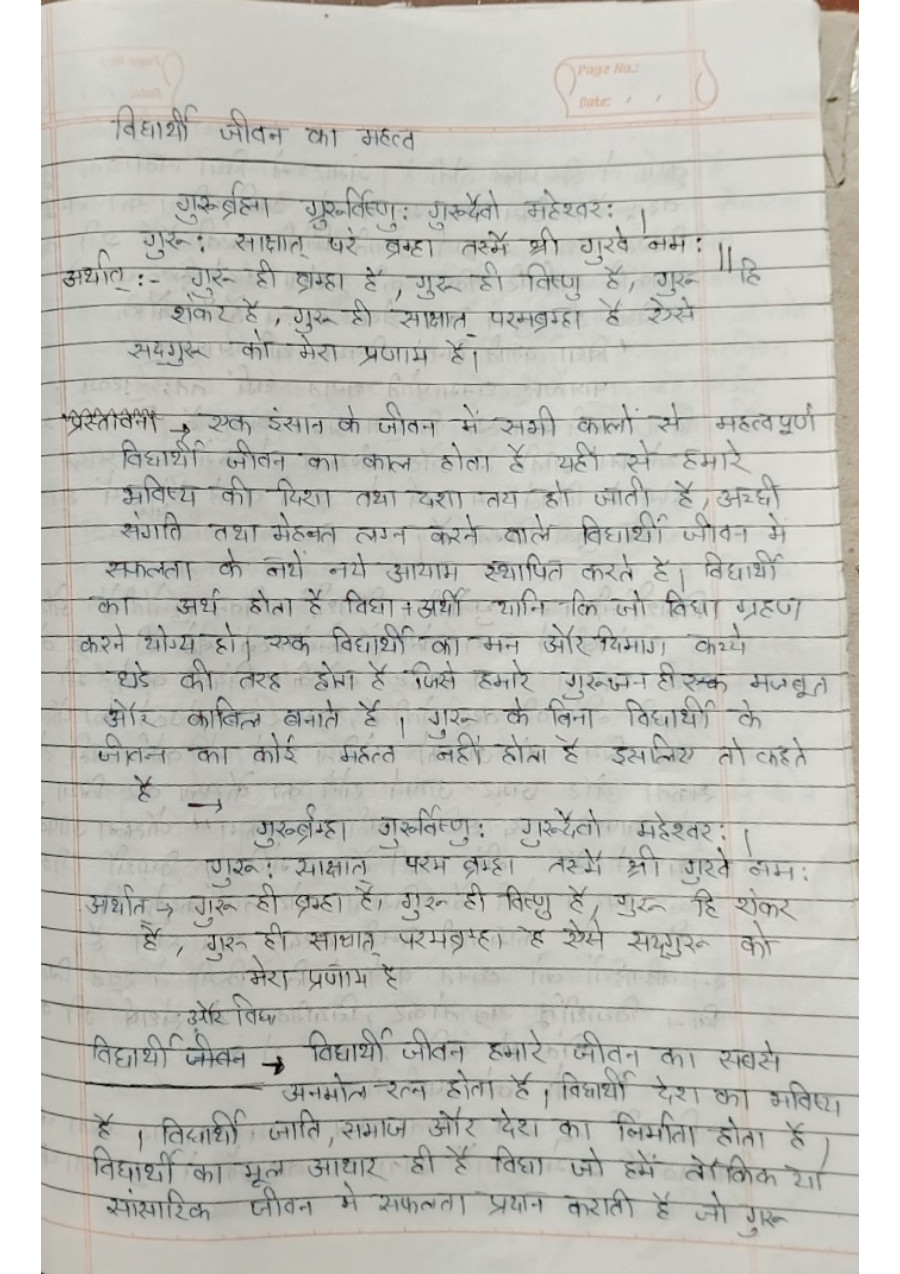 Page No.:
Date: / /
विद्यार्थी जीवन का महत्त
गुरूर्ब्रह्मा गुरूर्विष्णु: गुरूर्दैवो महेश्वर: ।
गुरू: साक्षात् परं ब्रम्हा तस्मै श्री गुरवे नम: ॥
अर्थात् :- गुरू ही ब्रम्हा है , गुरू ही विष्णु है, गुरू हि
शंकर है , गुरू ही साक्षात् परमब्रम्हा है ऐसे
सद्गुरू को मेरा प्रणाम है।
प्रस्तावना → एक इंसान के जीवन में सभी कालों से महत्वपूर्ण
विद्यार्थी जीवन का काल होता है यही से हमारे
भविष्य की दिशा तथा दशा तय हो जाती है , अच्छी
संगति तथा मेहनत लग्न करने वाले विद्यार्थी जीवन में
सफलता के नये नये आयाम स्थापित करते है। विद्यार्थी
का अर्थ होता है विद्या + अर्थी यानि कि जो विद्या ग्रहण
करने योग्य हो। एक विद्यार्थी का मन और दिमाग कच्चे
घडे की तरह होता है जिसे हमारे गुरूजन ही एक मजबूत
और काबिल बनाते है । गुरू के बिना विद्यार्थी के
जीवन का कोई महत्त नहीं होता है इसलिए तो कहते
है →
गुरूर्ब्रम्हा गुरूर्विष्णु: गुरूर्दैवो महेश्वर: ।
गुरू: साक्षात् परम ब्रम्हा तस्मै श्री गुरवे नम:
अर्थात् → गुरू ही ब्रम्हा है, गुरू ही विष्णु है, गुरू हि शंकर
है , गुरू ही साक्षात् परमब्रम्हा है ऐसे सद्गुरू को
मेरा प्रणाम है
और विद्य
विद्यार्थी जीवन → विद्यार्थी जीवन हमारे जीवन का सबसे
अनमोल रत्न होता है । विद्यार्थी देश का भविष्य
है । विद्यार्थी जाति , समाज और देश का निर्माता होता है ,
विद्यार्थी का मूल आधार ही है विद्या जो हमें लौकिक या
सांसारिक जीवन मे सफलता प्रदान कराती है जो गुरू